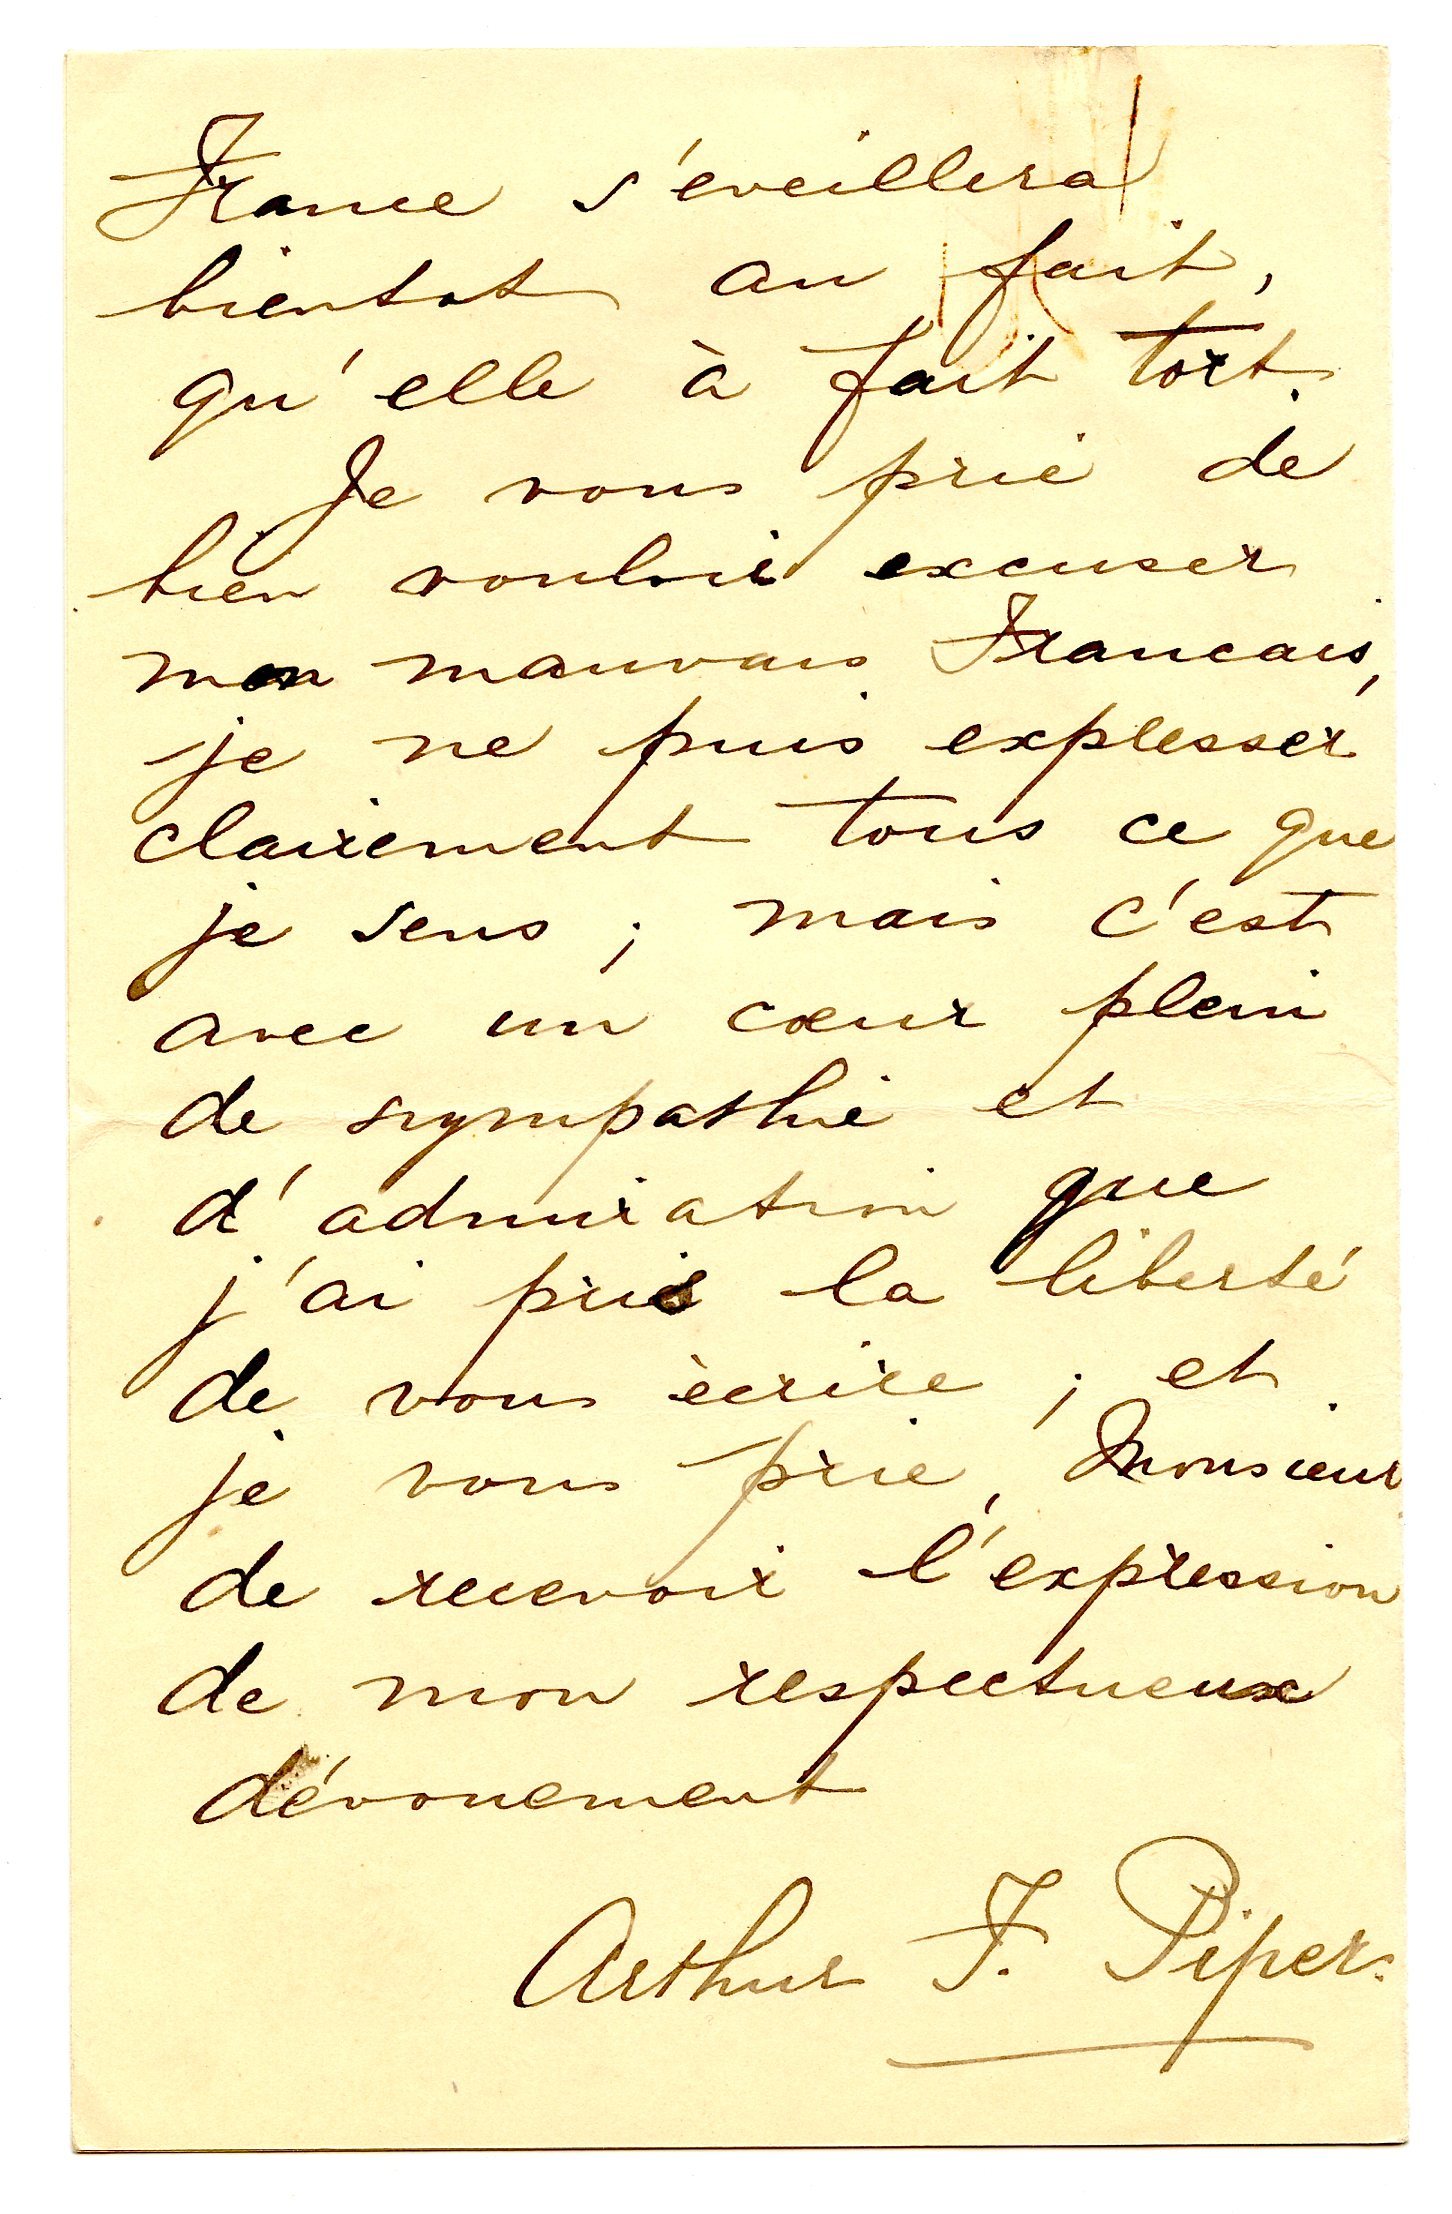 France s'eveillera
bientot au fait,
qu'elle à fait tort.
Je vous prie de
bien vouloir excuser
mon mauvais Francais,
je ne puis expresser
clairement tous ce que
je sens ; mais c'est
avec un cœur plein
de sympathie et
d'admiration que
j'ai pris la liberté
de vous ècrire ; et
je vous prie, Monsieur
de recevoir l'expression
de mon respectueux
dévouement
Arthur F. Piper.